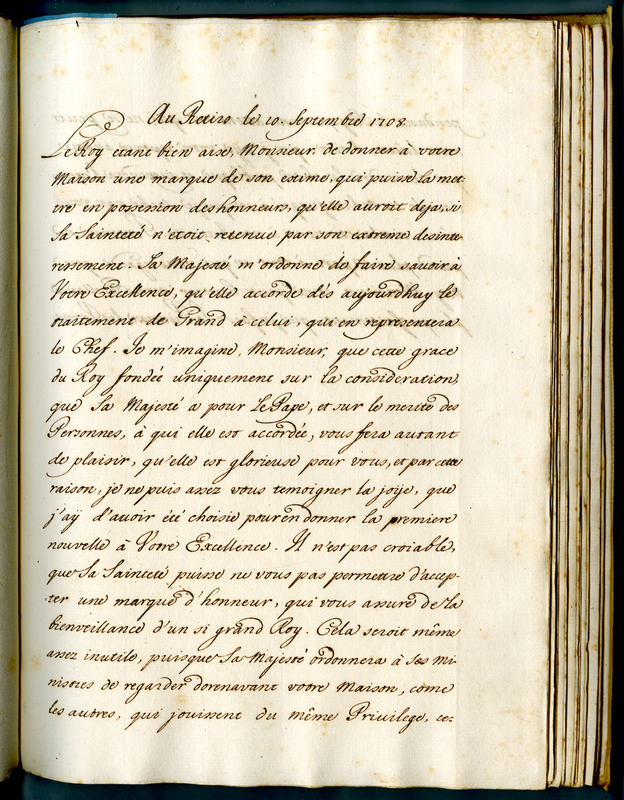 Au Retiro le 10. Septembre 1708
Le Roy etant bien aise, Monsieur, de donner à votre
Maison une marque de son estime, qui puisse la met-
tre en possession des honneurs, qu'elle auroit deja, si
Sa Sainteté n'etoit retenue par son extreme desinte-
ressement. Sa Majesté m'ordonne de faire savoir à
Votre Excellence, qu'elle accorde dés aujourdhuy le
traitement de Grand à celui, qui en representera
le Chef. Je m'imagine, Monsieur, que cette grace
du Roy fondée uniquement sur la consideration,
que Sa Majesté a pour Le Pape, et sur le merite des
Personnes, à qui elle est accordée, vous fera autant
de plaisir, qu'elle est glorieuse pour vous, et par cette
raison, je ne puis assez vous temoigner la joije, que
j'aÿ d'avoir été choisie pour en donner la premiere
nouvelle à Votre Excellence. Il n'est pas croiable,
que Sa Sainteté puisse ne vous pas permettre d'accep-
ter une marque d'honneur, qui vous assure de la
bienveillance d'un si grand Roy. Cela seroit même
assez inutile, puisque Sa Majesté ordonnera à ses Mi-
nistres de regarder dorenavant votre Maison, come
les autres, qui jouissent du même Privilege, ce-